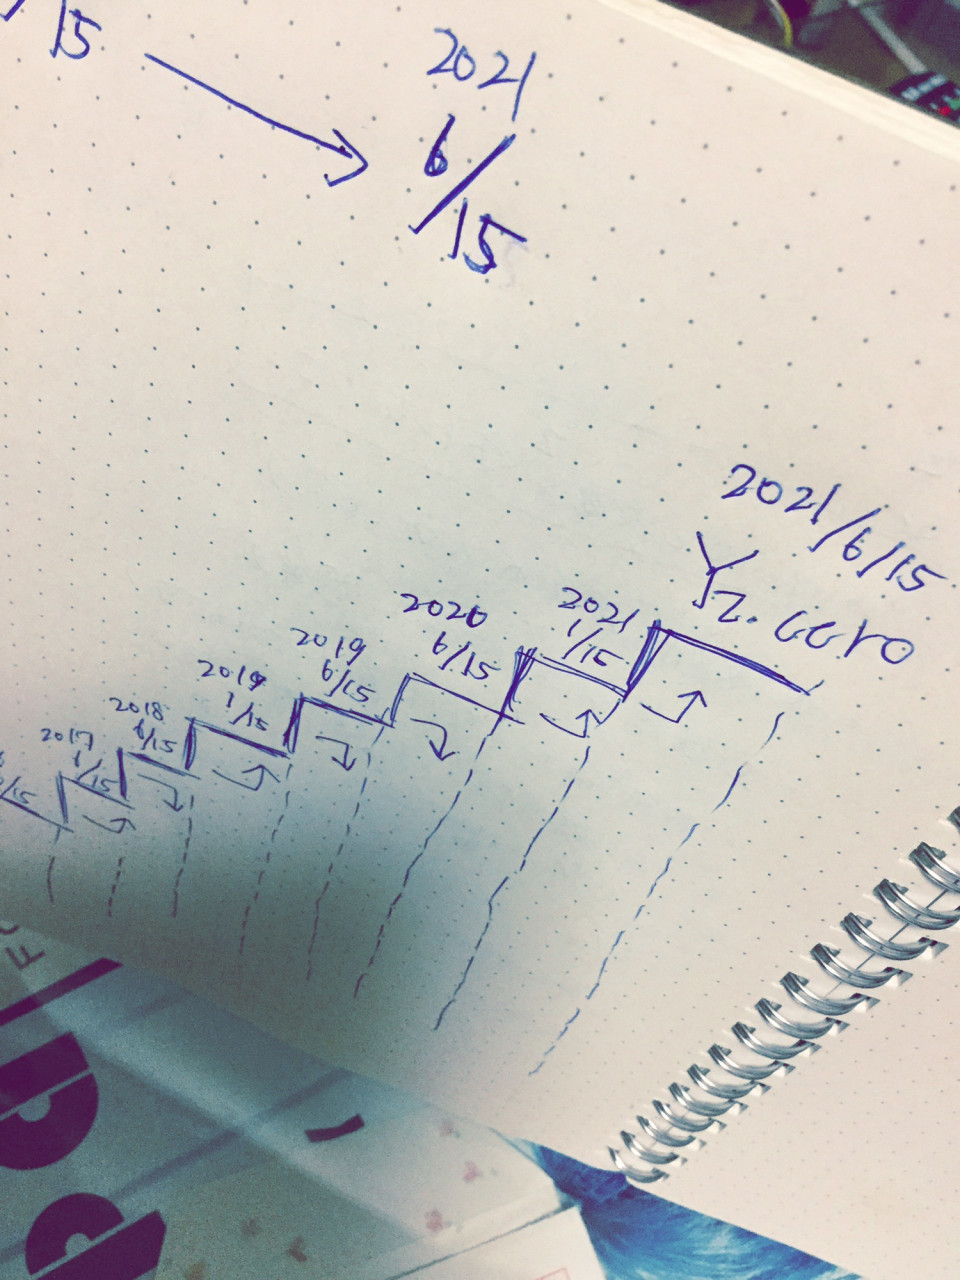 /15
2021
6/15
2021/6/15
Yz.cero
2021
1/15
2020
6/15
2019
6/15
2019
1/15
2018
6/15
2017
1/15
/15